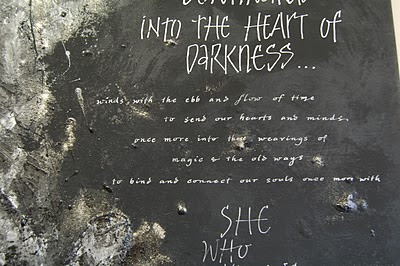 INTO THE HEART OF
DARKNESS...
winds, with the ebb and flow of time
to send our hearts and minds,
once more into these weavings of
magic & the old ways
to bind and connect our souls once more with
SHE
WHO